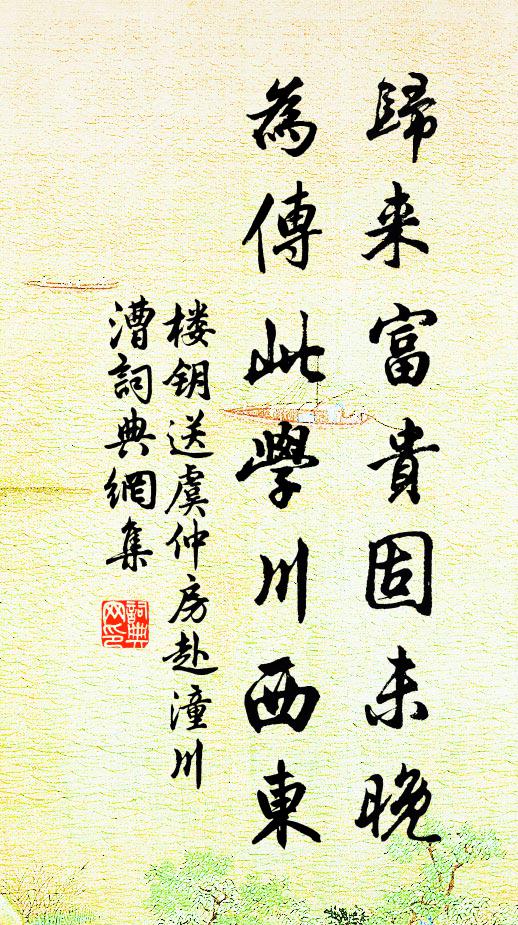 歸来富貴固未晚
為傳此學川西東
楼钥送虞仲房赴潼川
漕詞典網集
詞典网印